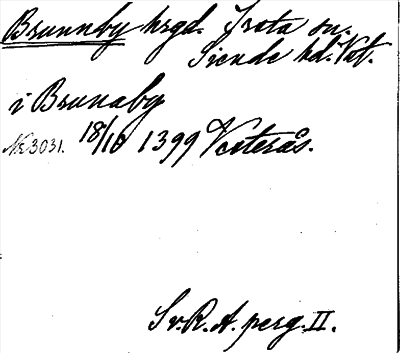 Brunnby hrgd. Irsta sn.
Siende hd. Vstm.
i Brunaby
Nr 3031. 18/10 1399 Vesterås.
Sv. R. A. perg. II.